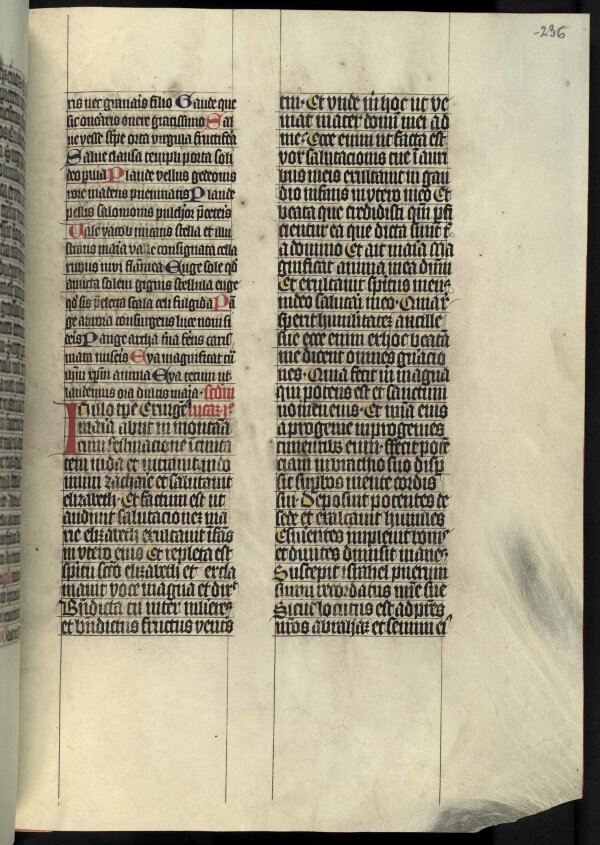 -236
ris nec graminis filio Gaude que
sic ouario onere gratissimo Sal
ue yesse stirpe orta virgula fructifera
Salue clausa templi porta soli
deo puia Plaude vellus gedeonis
rore madens pneumatis Plaude
pellis salomonis pulchor pre ceteris
Vale yacob micans stella et illu
strans maria valle consignata cella
rubus inui flamea Euge sole
amicta solem gignis stellula euge
scala celi fulgida Pa
ge aurora consurgens luce noui si
deris Pange archa ferens caris
mata miseris Eya magnificat tu
um xpm anima Eya tecum ut
laudemus o dulcis maria. Scdm
In illo tpe Exurgens lucam
maria abiit in montana
cum festinacione in ciuita
tem iuda et intrauit in do
mum zacharie et salutauit
elizabeth. Et factum est ut
audiuit salutacionez ma
rie elizabeth exultauit ifans
in vtero eius Et repleta est
spiritu scto elizabeth et excla
mauit voce magna et dix
Bndicta tu inter mulieres
et bndictus fructus ventris
tui. Et vnde in hoc ut ve
niat mater domini mei ad
me. Ecce enim ut facta est
vox salutacionis tue i auri
bus meis exultauit in gau
dio infans in vtero meo Et
beata que credidisti qm pfi
cientur ea que dicta sunt t
a domino Et ait maria Ma
gnificat anima mea dnm
Et exultauit spiritus meus
in deo salutari meo. Quia re
sperit humilitatez ancille
sue ecce enim ex hoc beata
me dicent omnes gnacio
nes. Quia fecit m magna
qui potens est et sanctum
nomen eius. Et mia eius
a progenie in progenies
timentibus eum. ffecit poten
ciam in brachio suo disp
sit supbos mente cordis
sui. Deposuit potentes de
sede et exaltauit humiles
Esurientes impleuit bonis
et diuites dimisit inanes
Suscepit israhel puerum
suum recordatus mie sue
Sicut locutus est ad patres
nros abraham et semini ei